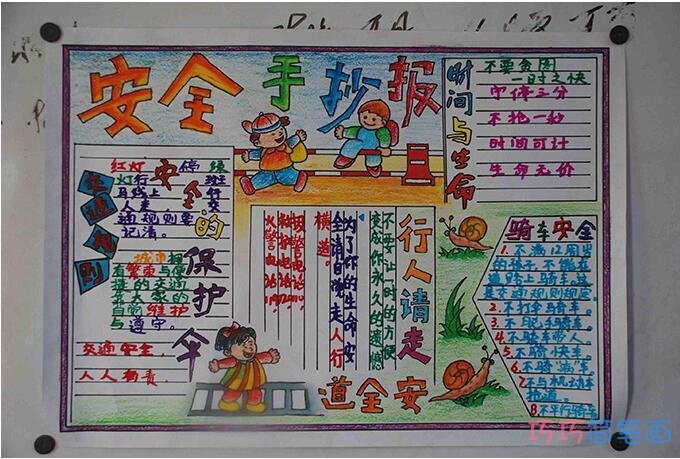 安全手抄报
时间与生命
不要贪图
一时之快
宁停三分
不抢一秒
时间可计
生命无价
交通规则
安全的保护伞
红灯停绿
灯行
班行交
通规则要
记清。
城市
有繁荣与
的交通
靠大家的
自觉维护
与遵守。
交通安全,
人人有责,
行人请走
安全道
不要让一时的方便
变成你永久的遗憾
为了你的生命安
全请自觉走人行
横道。
骑车安全
1.不满12周岁
的孩子,不能在
道路上骑车。这
是交通规则规定。
2.不打伞骑车。
3.不脱手骑车。
4.不骑车带人。
5.不骑快车。
6.不骑"病"车。
7.不与机动车
抢道。
8.不平行骑车
巧巧简笔画